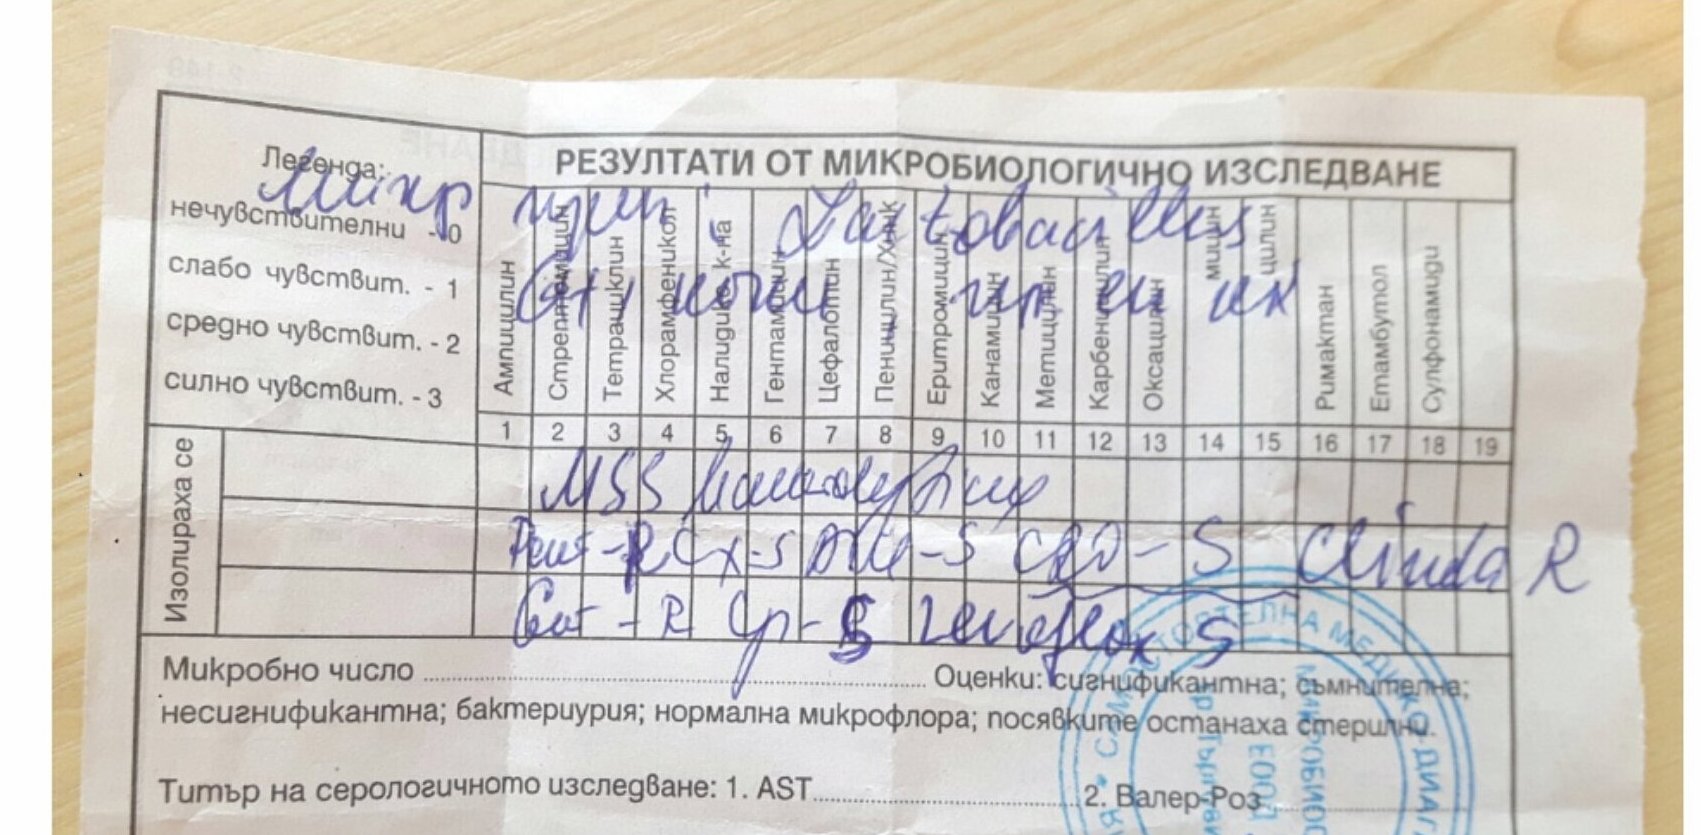 Легенда:
нечувствителни - 0
слабо чувствит. - 1
средно чувствит. - 2
силно чувствит. - 3
РЕЗУЛТАТИ ОТ МИКРОБИОЛОГИЧНО ИЗСЛЕДВАНЕ
Микр Lactobacillus
Ампицилин
Стрептомицин
Тетрациклин
Хлорамфеникол
Налидикс. к-на
Гентамицин
Цефалотин
Пеницилин/Хник
Еритромицин
Канамицин
Метицилин
Карбеницилин
Оксацилин
мицин
цилин
Римактан
Етамбутол
Сулфонамиди
1 2 3 4 5 6 7 8 9 10 11 12 13 14 15 16 17 18 19
Изолираха се
MSS
R Cx-S - S - S Clinda R
- R Cp-S Levoflox S
Микробно число Оценки: сигнификантна; съмнителна;
несигнификантна; бактериурия; нормална микрофлора; посявките останаха стерилни.
Титър на серологичното изследване: 1. AST 2. Валер-Роз
САМОСТОЯТЕЛНА МЕДИКО-ДИАГ
МИКРОБИОЛ
ЕООД